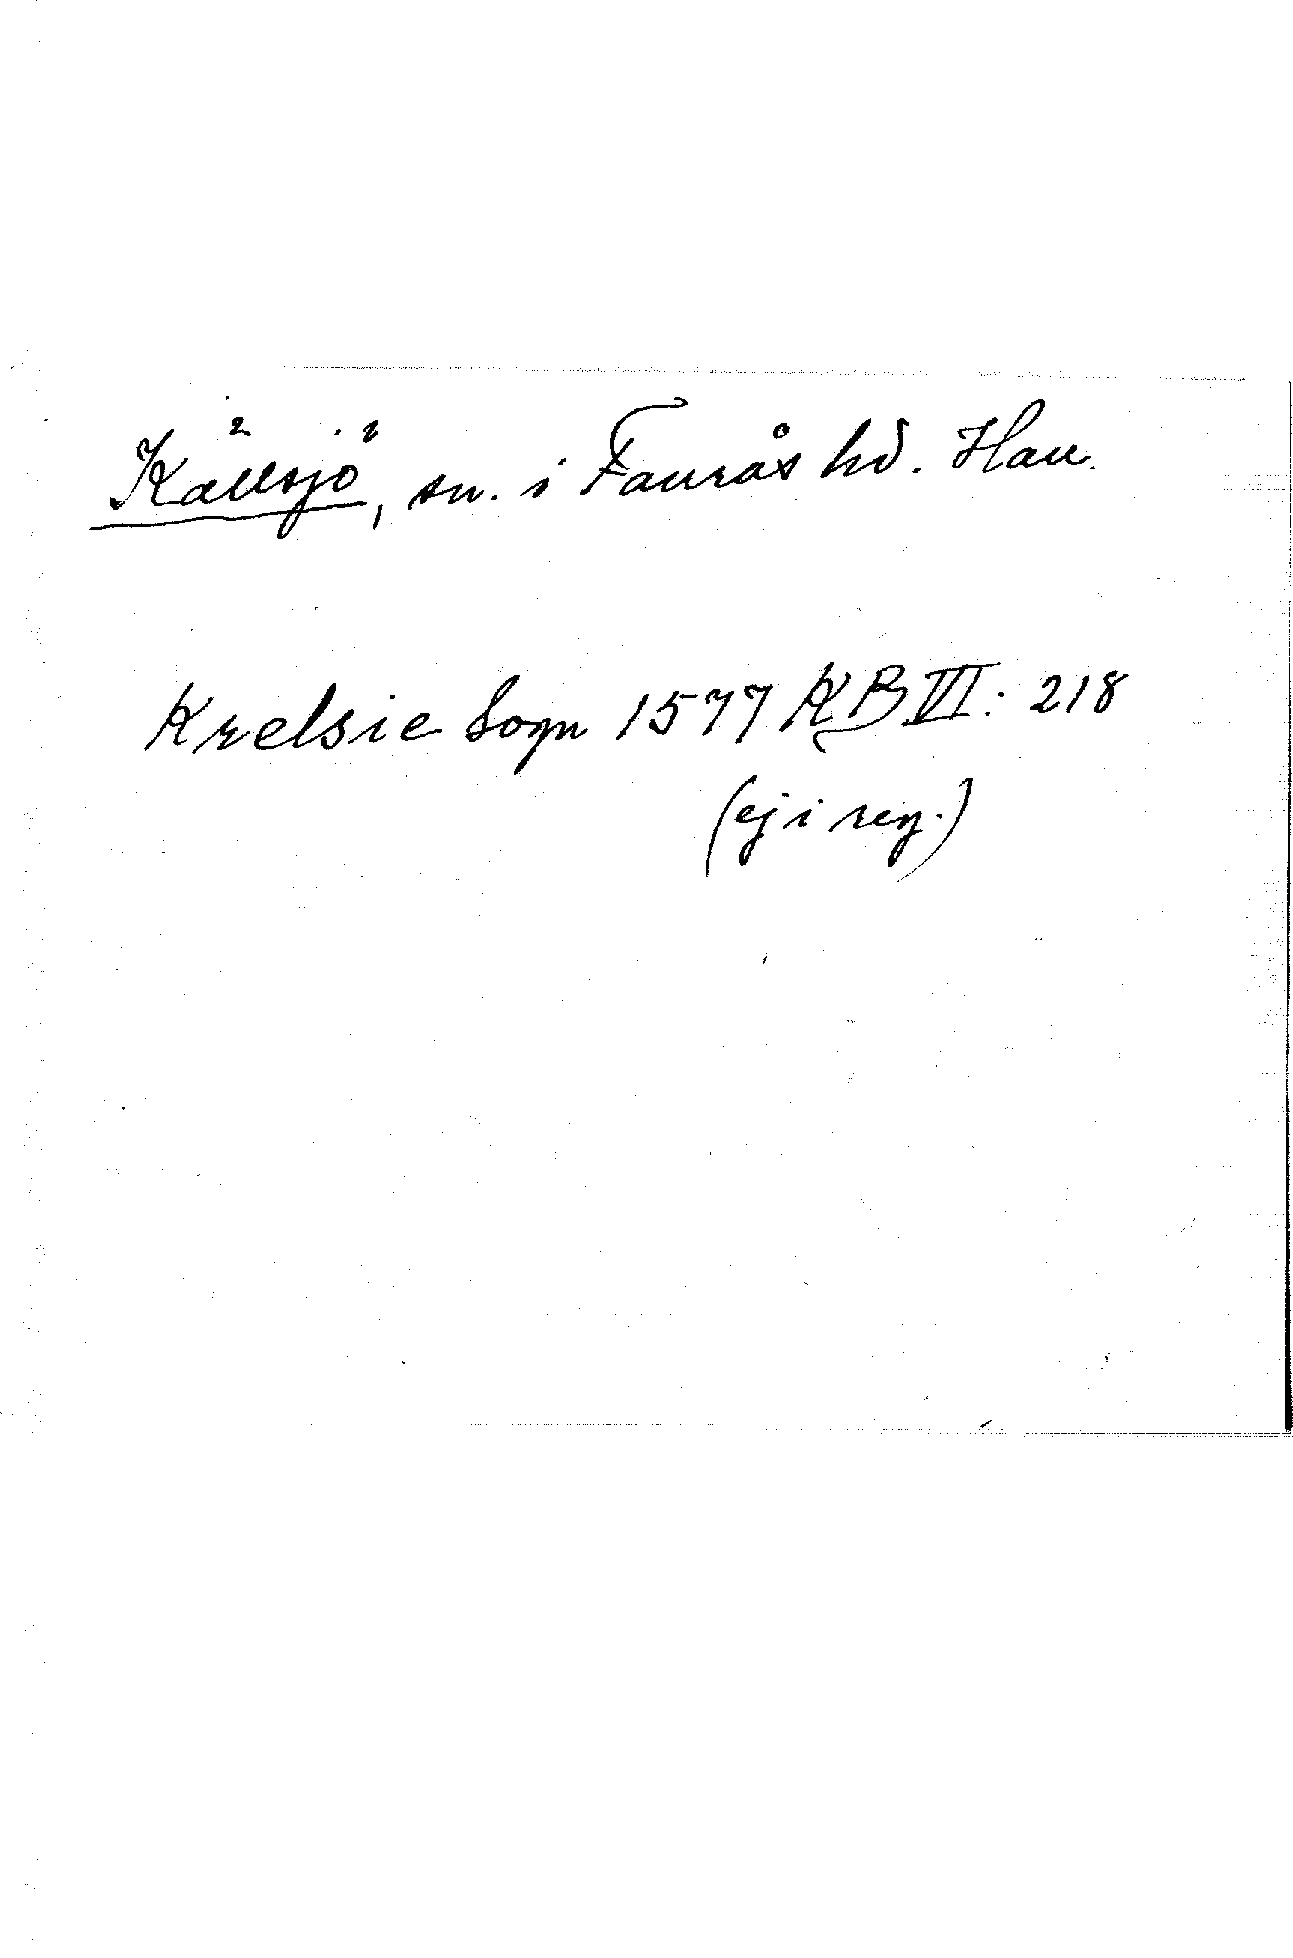 Källsjö, sn. i Faurås hd. Hall.
Krelsie Sogn 1577 KB VI: 218
(ej i reg.)